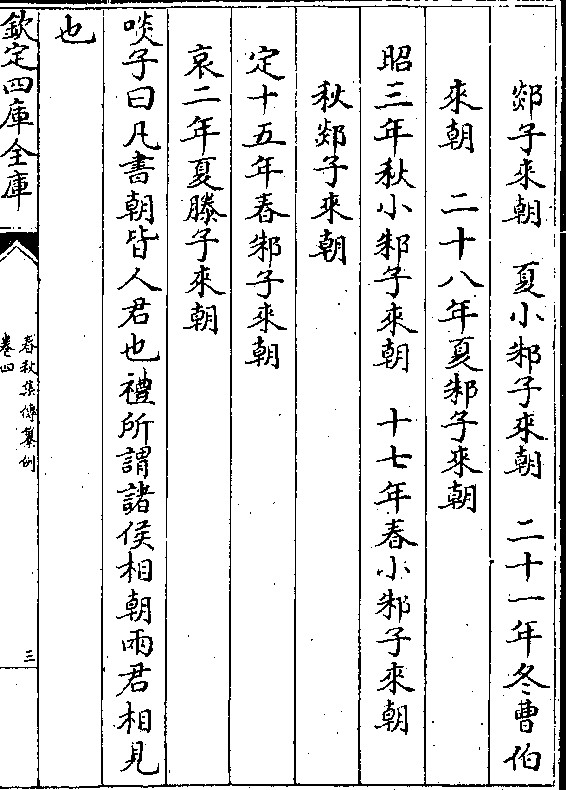 郯子來朝　夏小邾子來朝　二十一年冬曹伯
來朝　二十八年夏邾子來朝
昭三年秋小邾子來朝　十七年春小邾子來朝
秋郯子來朝
定十五年春邾子來朝
哀二年夏滕子來朝
啖子曰凡書朝皆人君也禮所謂諸侯相朝兩君相見
也
欽定四庫全庫
春秋集傳纂例
卷四
三